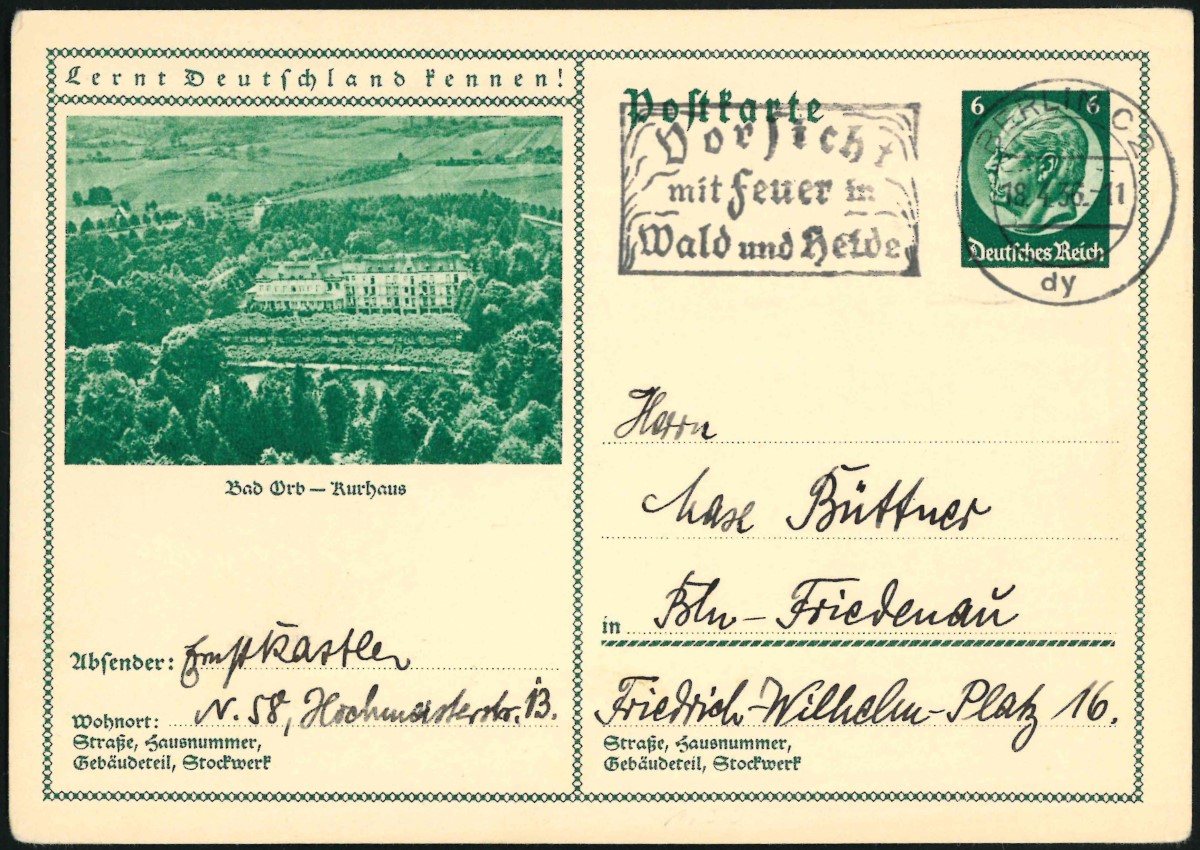 Lernt Deutschland kennen!
Bad Orb — Kurhaus
Absender: Ernst Kastler
Wohnort: N. 58, Hochmeisterstr. 13.
Straße, Hausnummer,
Gebäudeteil, Stockwerk
Postkarte
Vorsicht
mit Feuer in
Wald und Heide
6 6
Deutsches Reich
BERLIN C2
18.4.36.-11
dy
Herrn
Max Büttner
in Bln - Friedenau
Friedrich-Wilhelm-Platz 16.
Straße, Hausnummer,
Gebäudeteil, Stockwerk